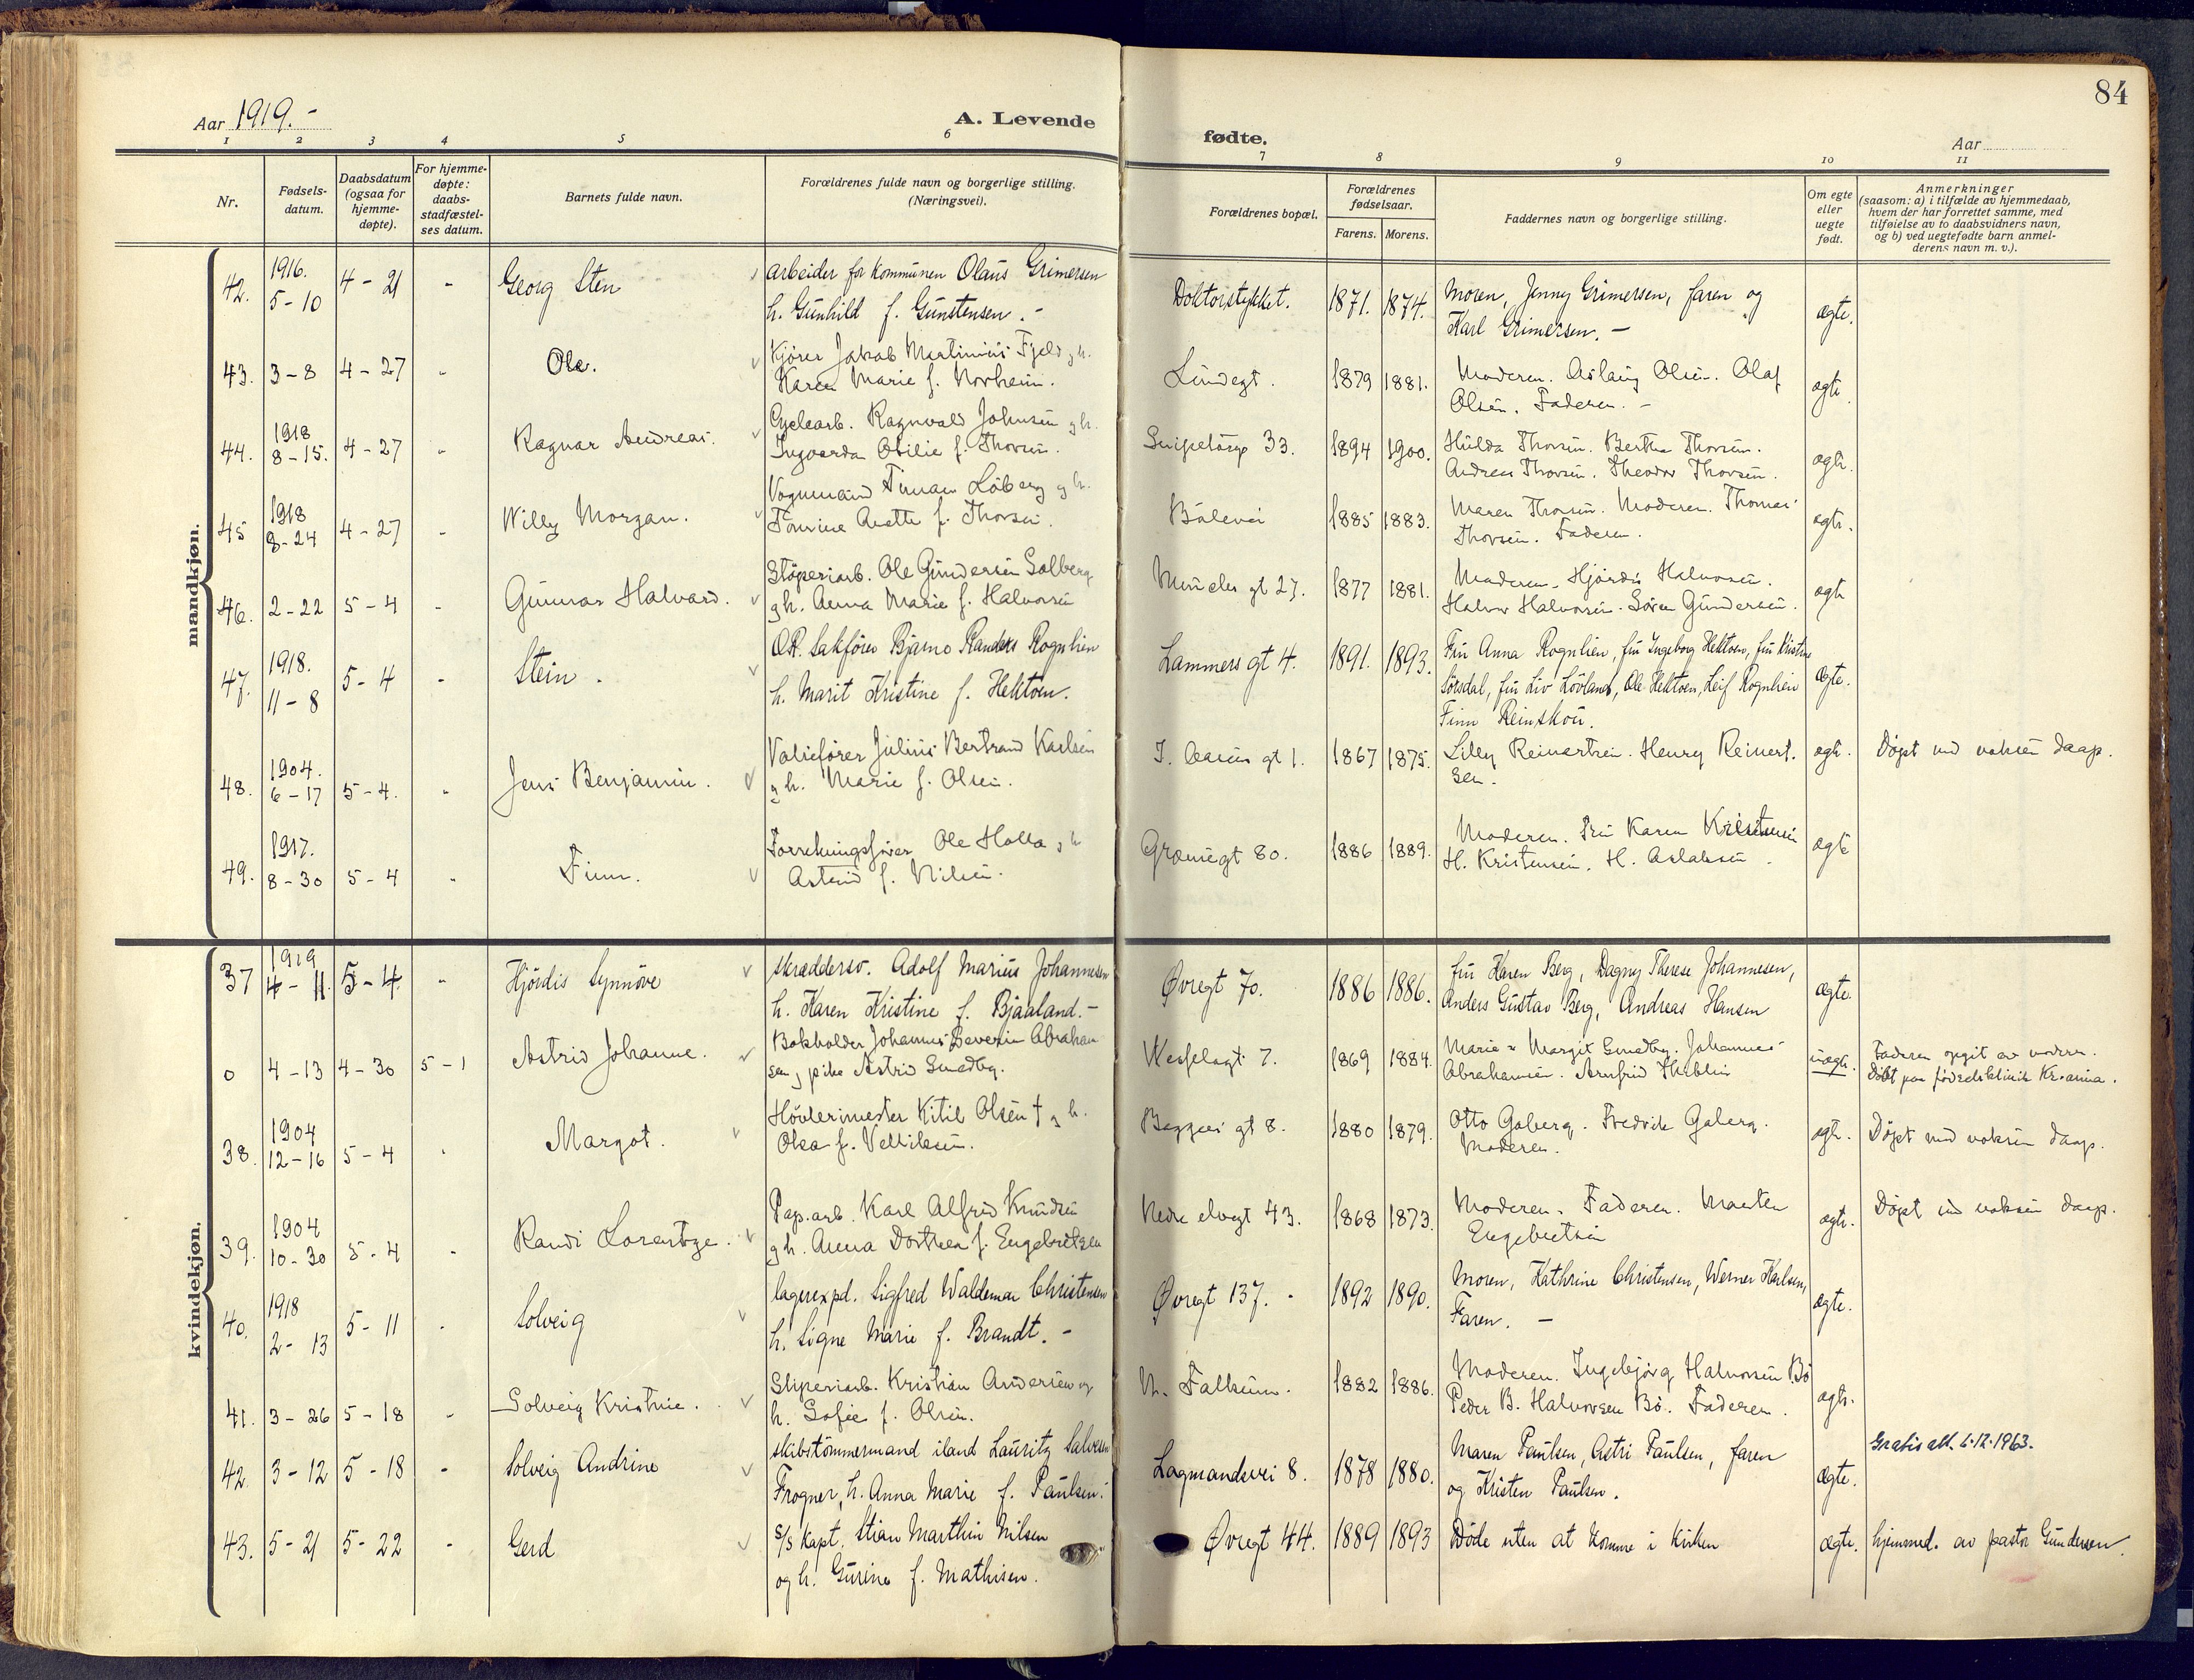 84
Aar 1919.-
A. Levende
fødte.
Aar
1 2 3 4 5 6 7 8 9 10 11
Nr.
Fødsels-
datum.
Daabsdatum
(ogsaa for
hjemme-
døpte).
For hjemme-
døpte:
daabs-
stadfæstel-
ses datum.
Barnets fulde navn.
Forældrenes fulde navn og borgerlige stilling.
(Næringsvei).
Forældrenes bopæl.
Forældrenes
fødselsaar.
Farens. Morens.
Faddernes navn og borgerlige stilling.
Om egte
eller
uegte
født.
Anmerkninger
(saasom: a) i tilfælde av hjemmedaab,
hvem der har forrettet samme, med
tilføielse av to daabsvidners navn,
og b) ved uegtefødte barn anmel-
derens navn m. v.).
mandkjøn.
42. 1916. 5-10 4-21 - Georg Sten
arbeider for kommunen Olaus Grimersen
h. Gunhild f. Gunstensen.-
Doktorstykket. 1871. 1874.
Moren, Jenny Grimersen, faren og
Karl Grimersen.-
ægte.
43. 3-8 4-27 - Ole.
Kjører Jakob Martinius Fjeld og h.
Karen Marie f. Norheim.
Lundegt. 1879 1881.
Moderen. Aslaug Olsen. Olaf
Olsen. Faderen.-
egte.
44. 1918 8-15. 4-27 - Ragnar Andreas.
Cyclearb. Ragnvald Johnsen og h.
Ingvarda Otilie f. Thorsen.
Snipetorp 33. 1894 1900.
Hulda Thorsen. Bertha Thorsen.
Andreas Thorsen. Theodor Thorsen.
egte.
45 1918 8-24 4-27 - Willy Morgan.
Vognmand Løberg og h.
Anette f. Thorsen.
Bølevei 1885 1883.
Maren Thorsen. Moderen. Thomas
Thorsen. Faderen.
egte.
46. 2-22 5-4 - Gunnar Halvard.
Støperiarb. Ole Gundersen Solberg
og h. Anna Marie f. Halvorsen
gt 27. 1877 1881.
Moderen. Hjørdis Halvorsen.
Halvor Halvorsen. Søren Gundersen.
egte
47. 1918. 11-8 5-4 - Stein.
O.R. Sakfører Bjarne Randers Rognlien
h. Marit Kristine f. Hektoen.
Lammers gt 4. 1891. 1893.
Fru Anna Rognlien, fru Ingeborg Hektoen, fru Kristine
Sørsdal, fru Liv Løvland, Ole Hektoen, Leif Rognlien
Finn Reinskou.
ægte.
48. 1904. 6-17 5-4. - Jens Benjamin.
Julius Bertrand Karlsen
og h. Marie f. Olsen.
gt 1. 1867 1875.
Lilly Reinertsen. Henry Reinert-
sen.
egte.
Døpt ved voksen daap.
49. 1917. 8-30 5-4 - Finn.
Forretningsfører Ole Holla og h
Astrid f. Nilsen.
80. 1886 1889.
Moderen. Fru Karen Kristensen
H. Kristensen. H. Aslaksen.
egte
kvindekjøn.
37 1919 4-11. 5-4 - Hjørdis Synnøve
skræddersv. Adolf Marius Johannesen
h. Karen Kristine f. Bjaaland.-
Øvregt 70. 1886 1886.
fru Karen Berg, Dagny Therese Johannesen,
Anders Gustav Berg, Andreas Hansen
ægte.
0 4-13 4-30 5-1 Astrid Johanne.
Bokholder Johannes Severin Abraham
sen, pike Astrid Smedby.
Wesselsgt 7. 1869 1884.
Marie & Margit Smedby. Johannes
Abrahamsen. Arnfrid
uægte.
Faderen opgit av moderen.
Døbt paa fødselsklinik Kr.ania.
38. 1904 12-16 5-4 - Margot.
Høvlerimester Kitil Olsen † og h.
Olea f.
gt 8. 1880 1879.
Otto Goberg. Fredrik Goberg.
Moderen.
egte.
Døpt ved voksen daap.
39. 1904 10-30 5-4 - Randi Lorentze.
Pap.arb. Karl Alfred Knudsen
og h. Anna Dorthea f. Engebretsen
Nedre elvegt 43. 1868 1873.
Moderen. Faderen. Marten
Engebretsen
egte.
Døpt ved voksen daap.
40. 1918 2-13 5-11 - Solveig
lagerexpd. Sigfred Waldemar Christensen
h. Signe Marie f. Brandt.-
Øvregt 137.- 1892 1890.
Moren, Kathrine Christensen, Werner Karlsen,
Faren.-
ægte.
41. 3-26 5-18 - Solveig Kristine.
Sliperiarb. Kristian Andersen og
h. Sofie f. Olsen.
N. Falkum. 1882 1886.
Moderen. Ingebjørg Halvorsen Bø
Peder B. Halvorsen Bø. Faderen.
egte.
42. 3-12 5-18 - Solveig Andrine
skibstømmermand iland Lauritz Salvesen
Frogner, h. Anna Marie f. Paulsen.-
Lagmandsvei 8. 1878 1880.
Maren Paulsen, Astri Paulsen, faren
og Kristen Paulsen.
ægte.
Gratis att. 6.12.1963.
43. 5-21 5-22 - Gerd
S/S kapt. Stian Marthin Nilsen
og h. Gurine f. Mathisen.
Øvregt 44. 1889 1893
Døde uten at komme i kirken
ægte.
hjemmed. av pastor Gundersen.